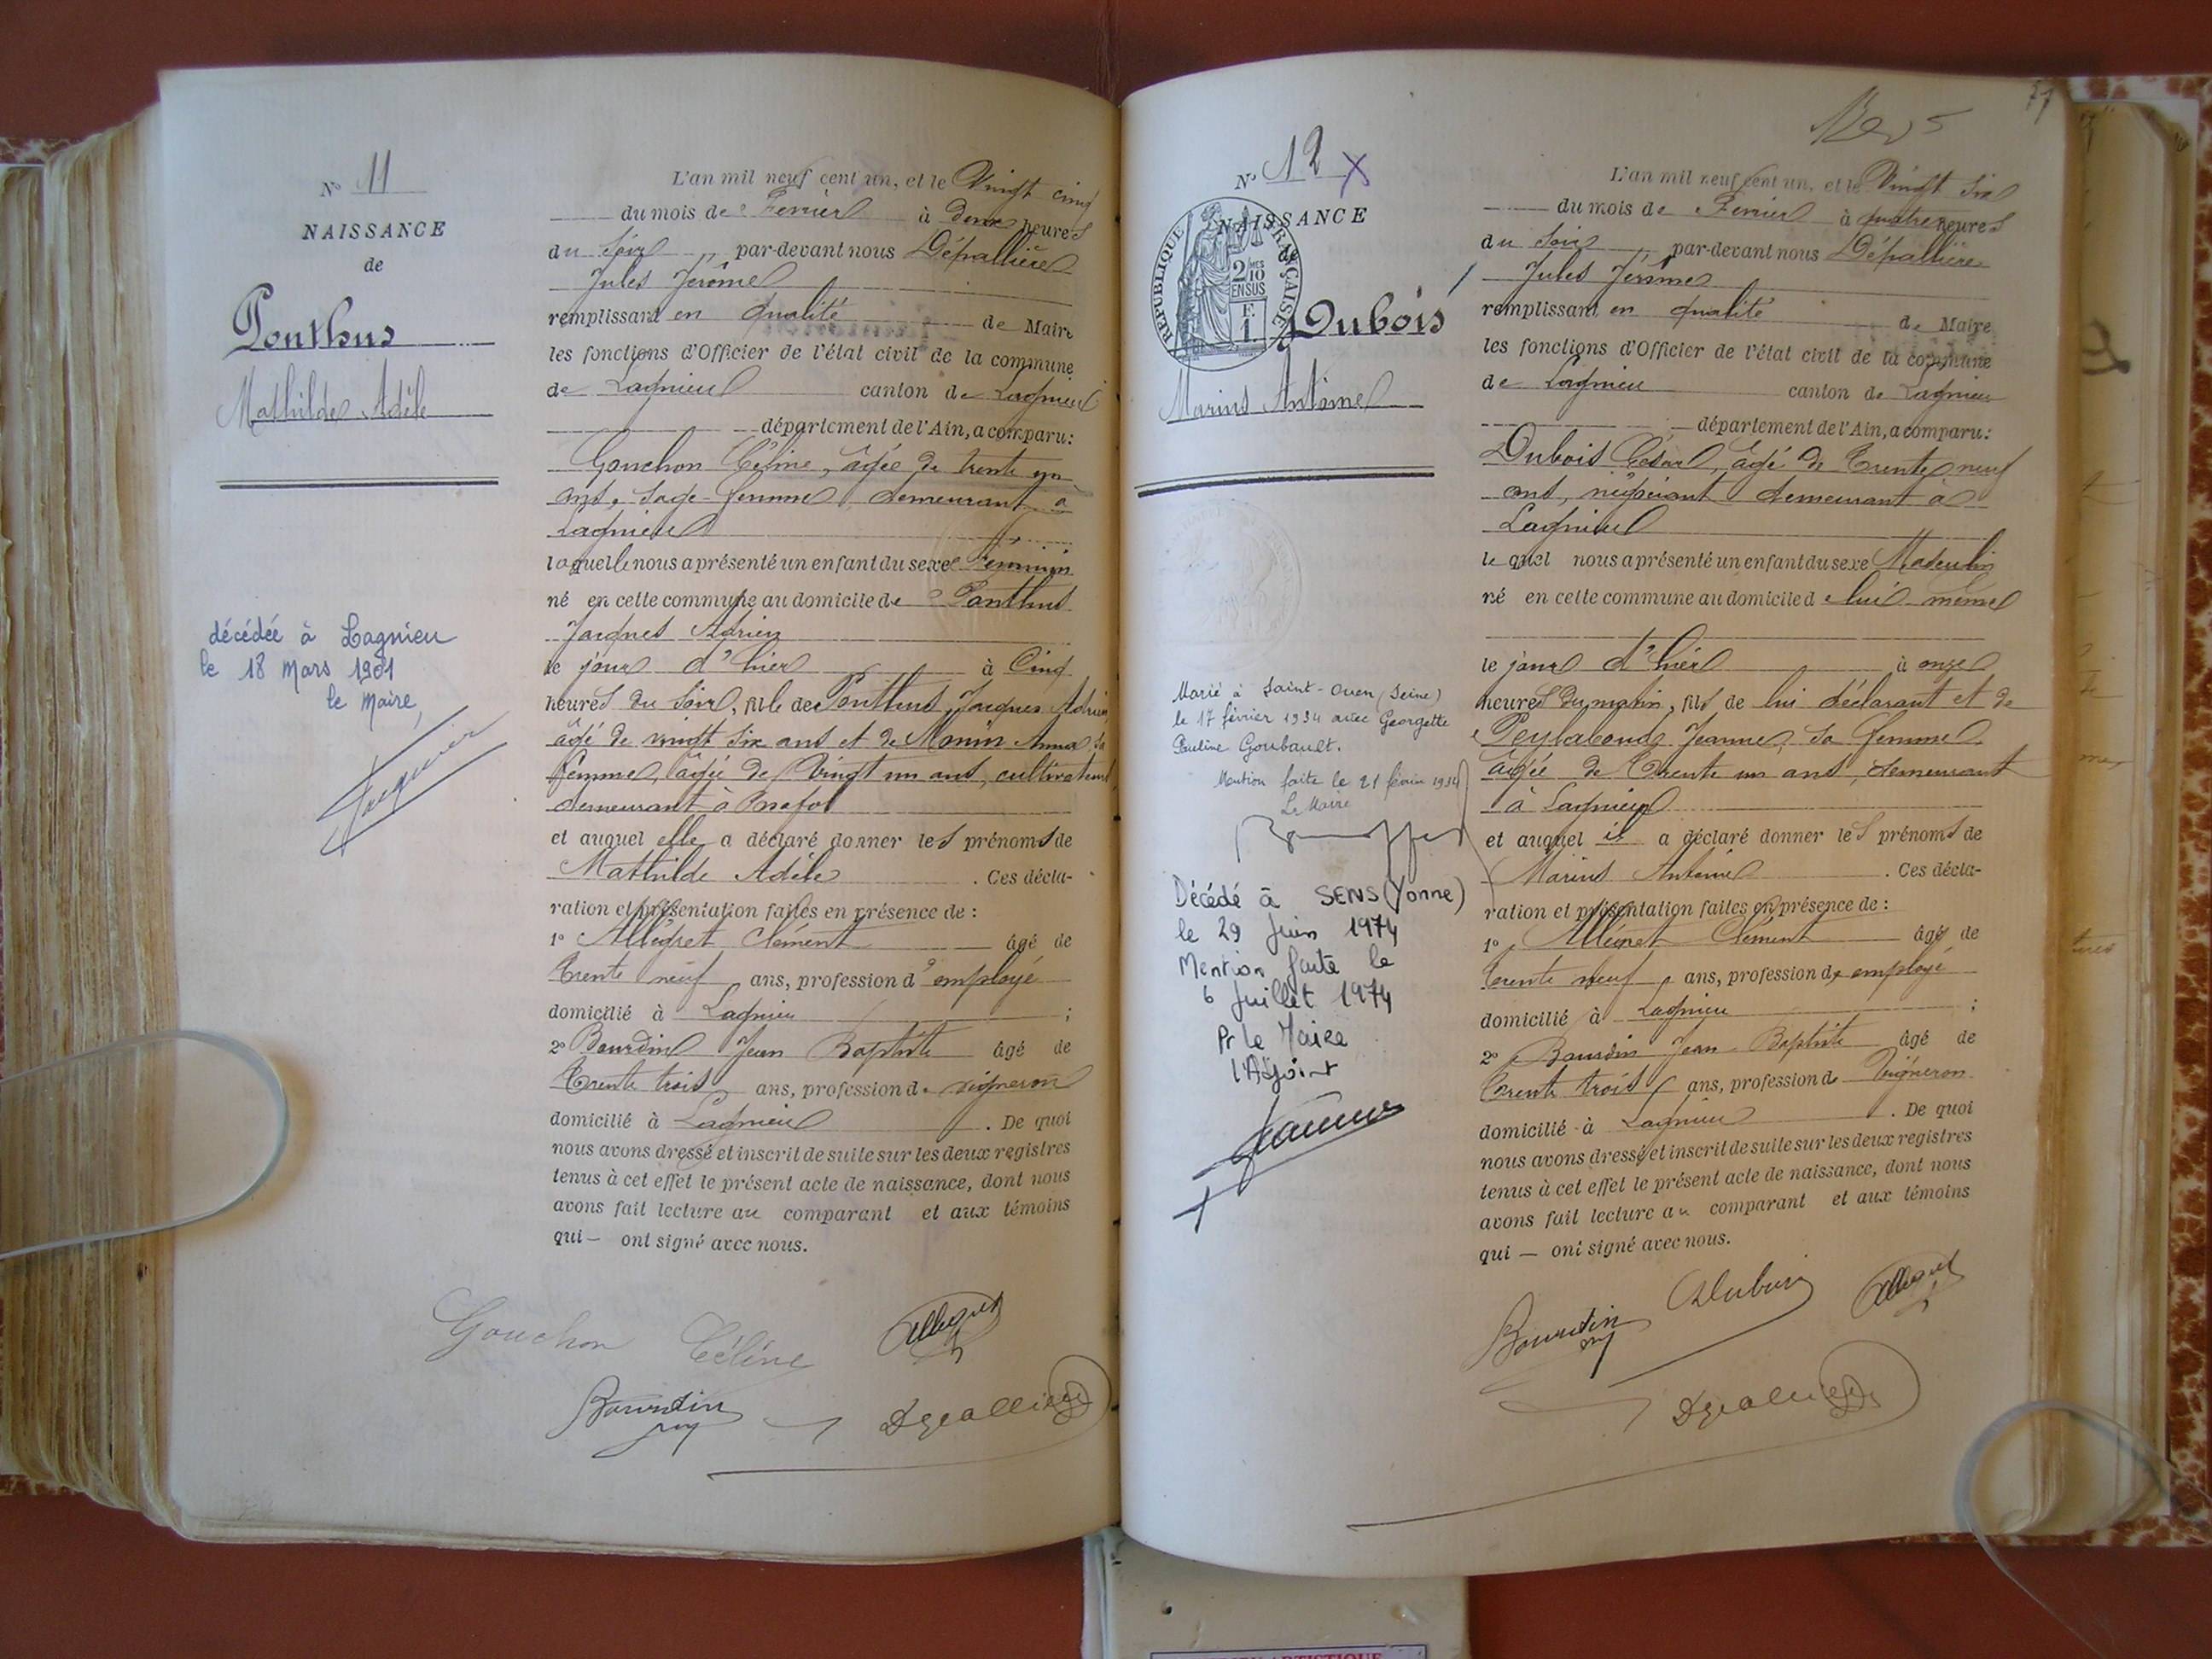 N° 11
NAISSANCE
de
Ponthus
Mathilde Adèle
décédée à Lagnieu
le 18 Mars 1901
le Maire,
L'an mil neuf cent un, et le Vingt cinq
du mois de Février à deux heures
du soir par-devant nous Dépallière
Jules Jérôme
remplissant en qualité de Maire
les fonctions d'Officier de l'état civil de la commune
de Lagnieu canton de Lagnieu
département de l'Ain, a comparu:
Gouchon Céline, âgée de trente un
ans, sage-femme demeurant à
Lagnieu
laquelle nous a présenté un enfant du sexe Féminin
né en cette commune au domicile de Ponthus
Jacques Adrien
le jour d'hier à Cinq
heures du soir, fille de Ponthus Jacques Adrien
âgé de vingt six ans et de Monin Anna, sa
femme, âgée de Vingt un ans, cultivateurs,
demeurant à
et auquel elle a déclaré donner les prénoms de
Mathilde Adèle . Ces décla-
ration et présentation faites en présence de :
1° Allégret Clément âgé de
Trente neuf ans, profession d'employé
domicilié à Lagnieu ;
2° Bourdin Jean Baptiste âgé de
Trente trois ans, profession de vigneron
domicilié à Lagnieu . De quoi
nous avons dressé et inscrit de suite sur les deux registres
tenus à cet effet le présent acte de naissance, dont nous
avons fait lecture au comparant et aux témoins
qui — ont signé avec nous.
Gouchon Céline Allegret
Bourdin Dépallière
77
N° 12 X
NAISSANCE
de
RÉPUBLIQUE FRANÇAISE
2/10 MES
EN SUS
F.
1.
Dubois
Marius Antoine
Marié à Saint-Ouen (Seine)
le 17 février 1934 avec Georgette
Pauline Goubault.
Mention faite le 21 février 1934
Le Maire
Décédé à SENS (Yonne)
le 29 Juin 1974
Mention faite le
6 Juillet 1974
Pr le Maire
l'Adjoint
L'an mil neuf cent un, et le Vingt six
du mois de Février à quatre heures
du soir par-devant nous Dépallière
Jules Jérôme
remplissant en qualité de Maire
les fonctions d'Officier de l'état civil de la commune
de Lagnieu canton de Lagnieu
département de l'Ain, a comparu:
Dubois César, âgé de Trente neuf
ans, négociant demeurant à
Lagnieu
lequel nous a présenté un enfant du sexe Masculin
né en cette commune au domicile de lui même
le jour d'hier à onze
heures du matin, fils de lui déclarant et de
Jeanne, sa femme
âgée de Trente un ans, demeurant
à Lagnieu
et auquel il a déclaré donner les prénoms de
Marius Antoine . Ces décla-
ration et présentation faites en présence de :
1° Allégret Clément âgé de
Trente neuf ans, profession d employé
domicilié à Lagnieu ;
2° Bourdin Jean-Baptiste âgé de
Trente trois ans, profession de Vigneron
domicilié à Lagnieu . De quoi
nous avons dressé et inscrit de suite sur les deux registres
tenus à cet effet le présent acte de naissance, dont nous
avons fait lecture au comparant et aux témoins
qui — ont signé avec nous.
Bourdin Dubois Allegret
Dépallière